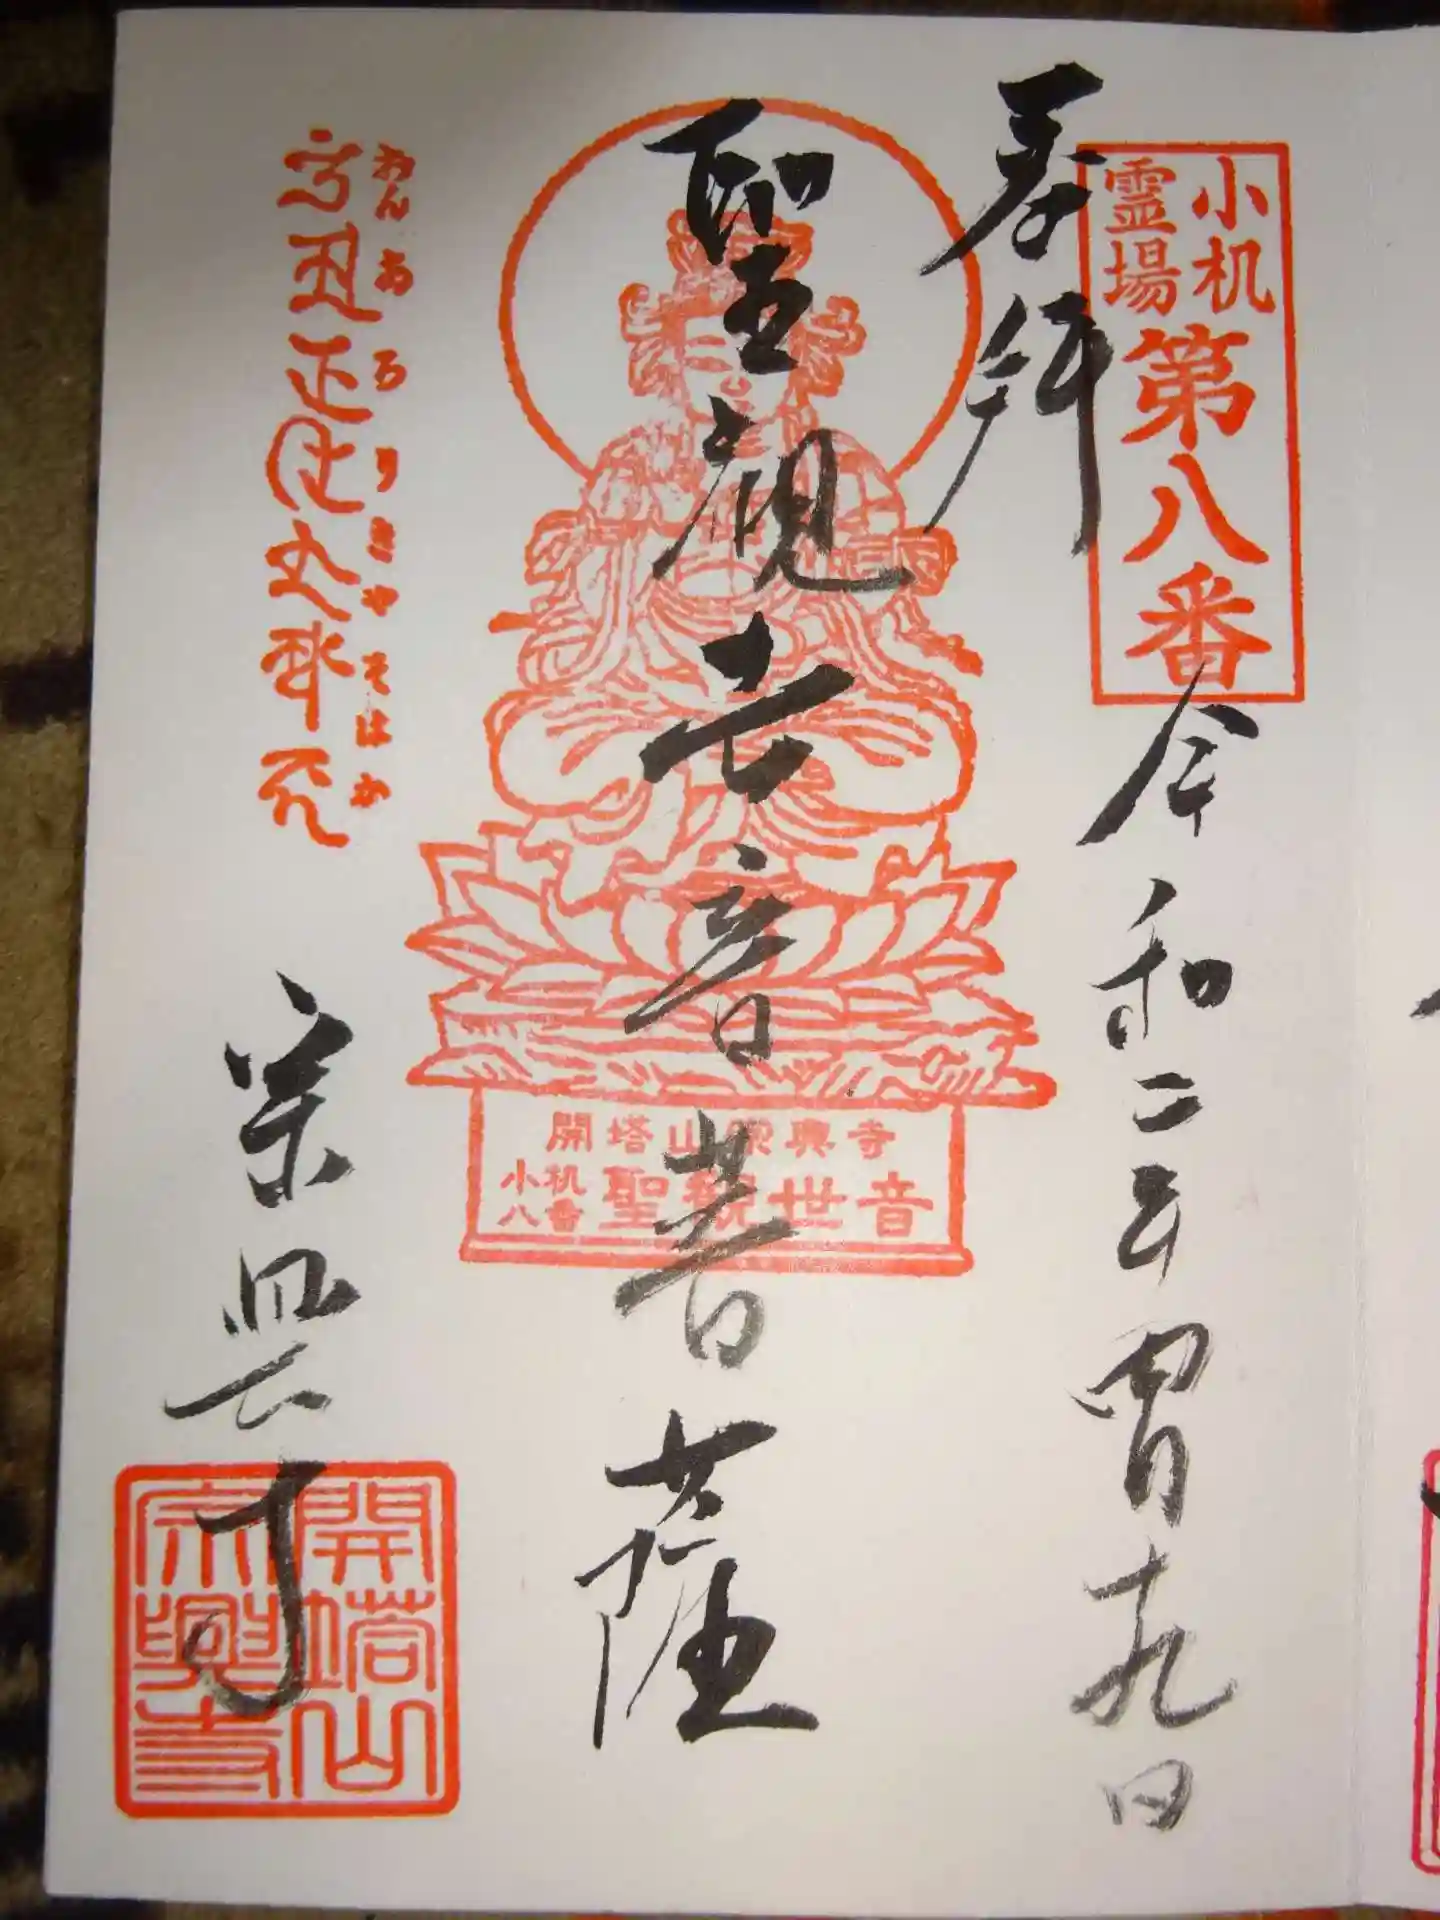 奉拝
小机
霊場
第八番
令和二年四月十九日
聖観世音菩薩
開塔山宗興寺
小机
八番
聖観世音
おんあろりきやそはか
宗興寺
開塔山
宗興寺